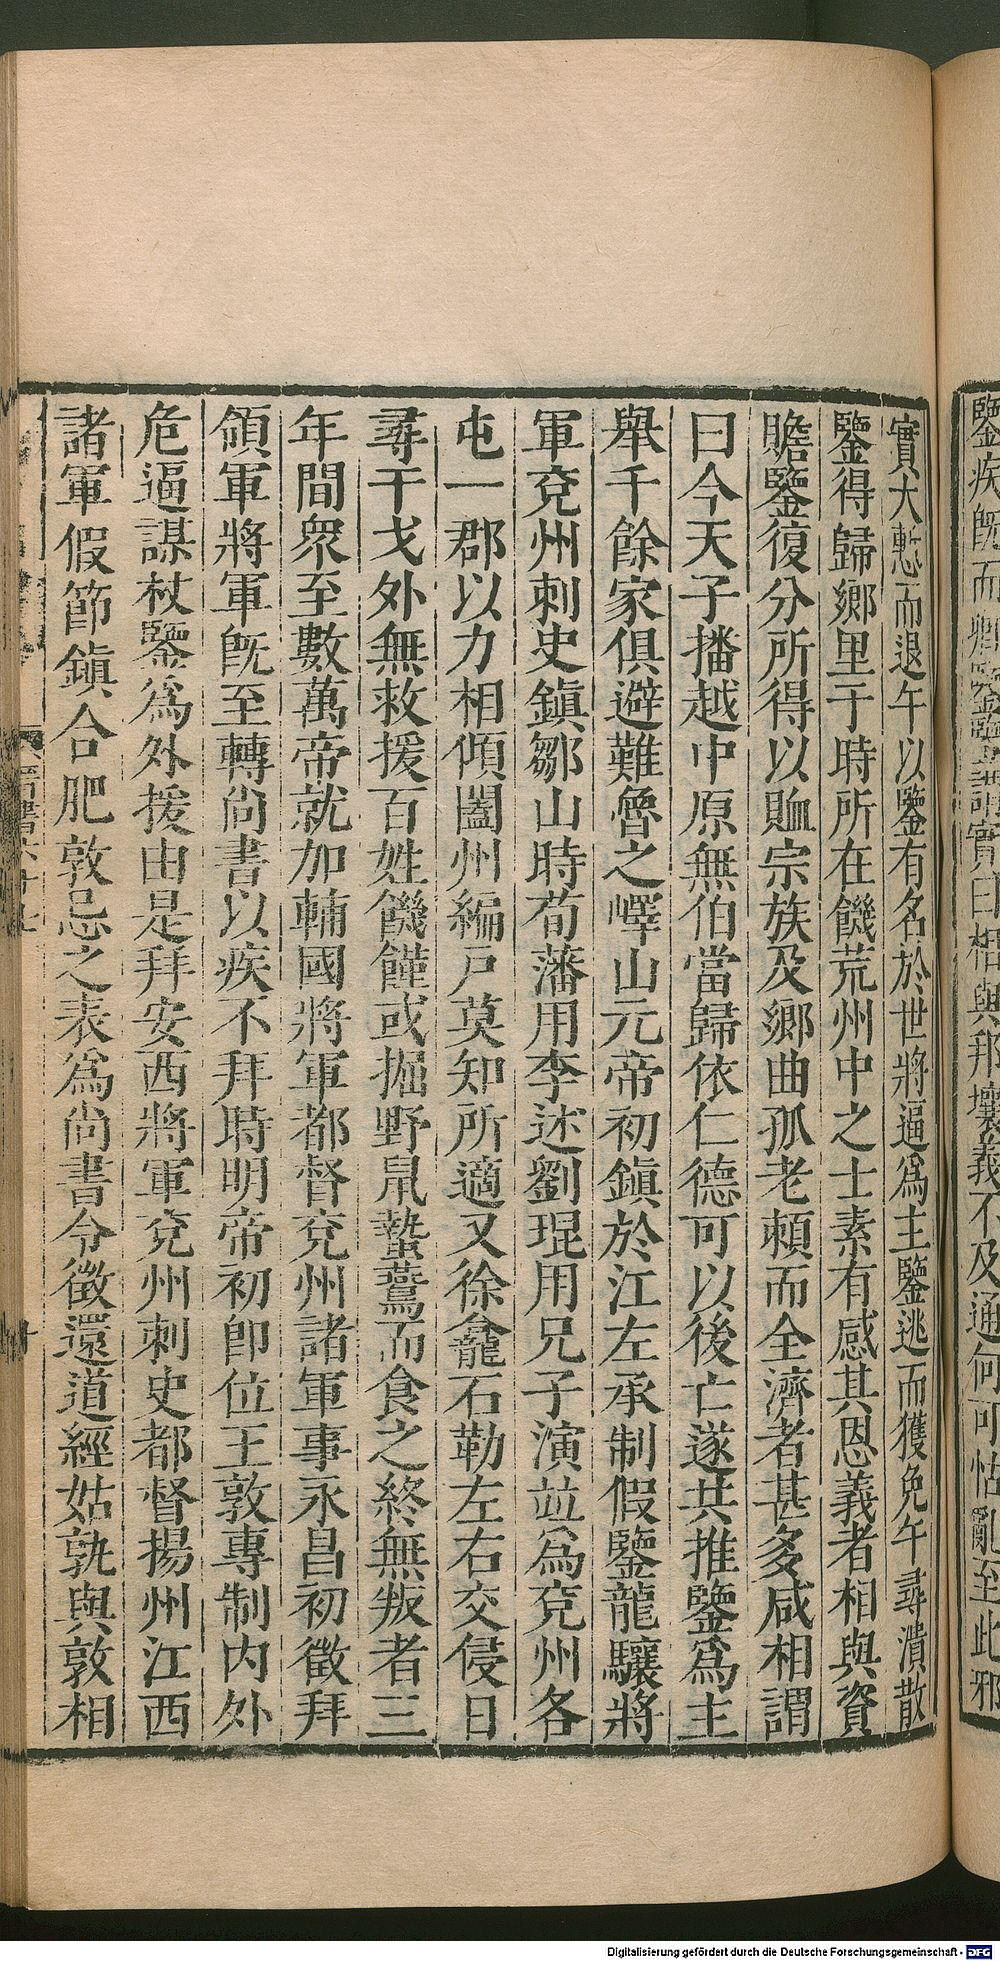 鑒疾既而卿鑒鑒謂實曰相與邦壤義不及通何可怙亂至此邪
實大慙而退午以鑒有名於世將逼爲主鑒逃而獲免午尋潰散
鑒得歸鄉里于時所在饑荒州中之士素有感其恩義者相與資
贍鑒復分所得以賉宗族及鄉曲孤老賴而全濟者甚多咸相謂
曰今天子播越中原無伯當歸依仁德可以後亡遂共推鑒爲主
舉千餘家俱避難魯之嶧山元帝初鎮於江左承制假鑒龍驤將
軍兗州刺史鎮鄒山時荀藩用李述劉琨用兄子演並爲兗州各
屯一郡以力相傾闔州編戸莫知所適又徐龕石勒左右交侵日
尋干戈外無救援百姓饑饉或掘野鼠蟄鷰而食之終無叛者三
年間衆至數萬帝就加輔國將軍都督兗州諸軍事永昌初徵拜
領軍將軍既至轉尚書以疾不拜時明帝初卽位王敦專制内外
危逼謀杖鑒爲外援由是拜安西將軍兗州刺史都督揚州江西
諸軍假節鎮合肥敦忌之表爲尚書令徵還道經姑孰與敦相
晉書六十
Digitalisierung gefördert durch die Deutsche Forschungsgemeinschaft - DFG